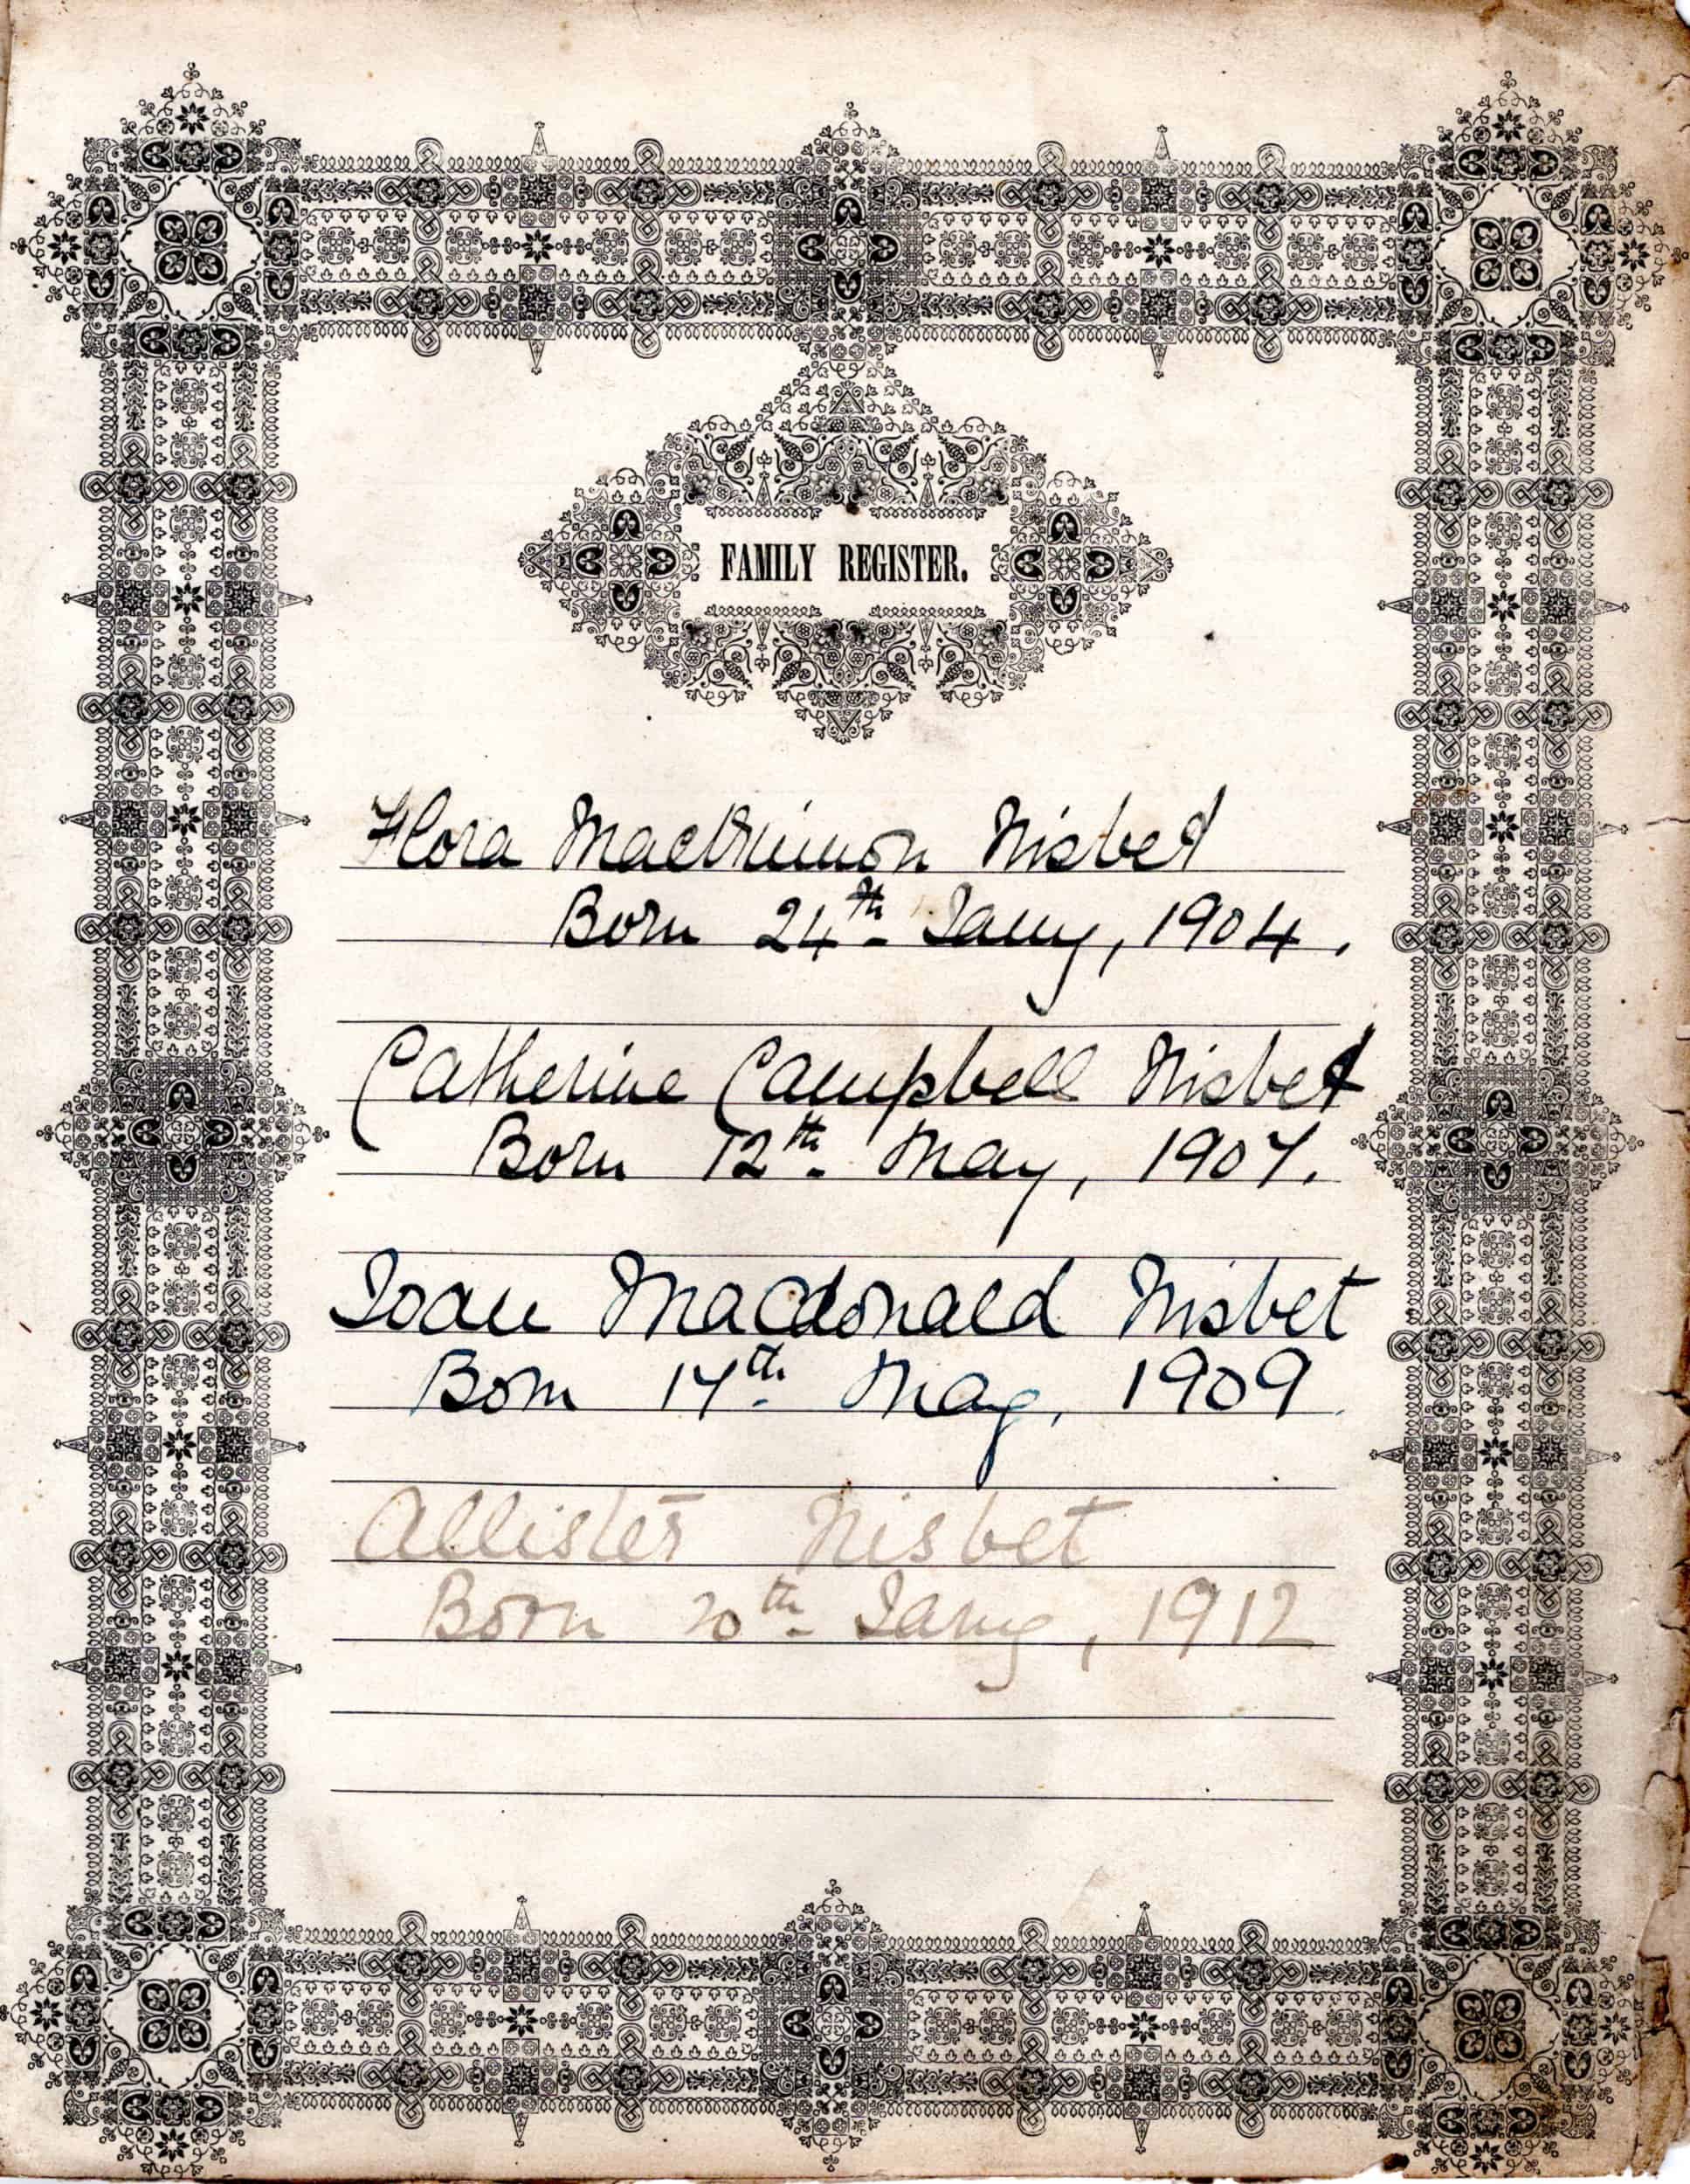 FAMILY REGISTER.
Flora MacKinnon Nisbet
Born 24th Jany, 1904.
Catherine Campbell Nisbet
Born 12th May, 1907.
Ioan Macdonald Nisbet
Born 17th May, 1909
Allister Nisbet
Born 20th Jany, 1912